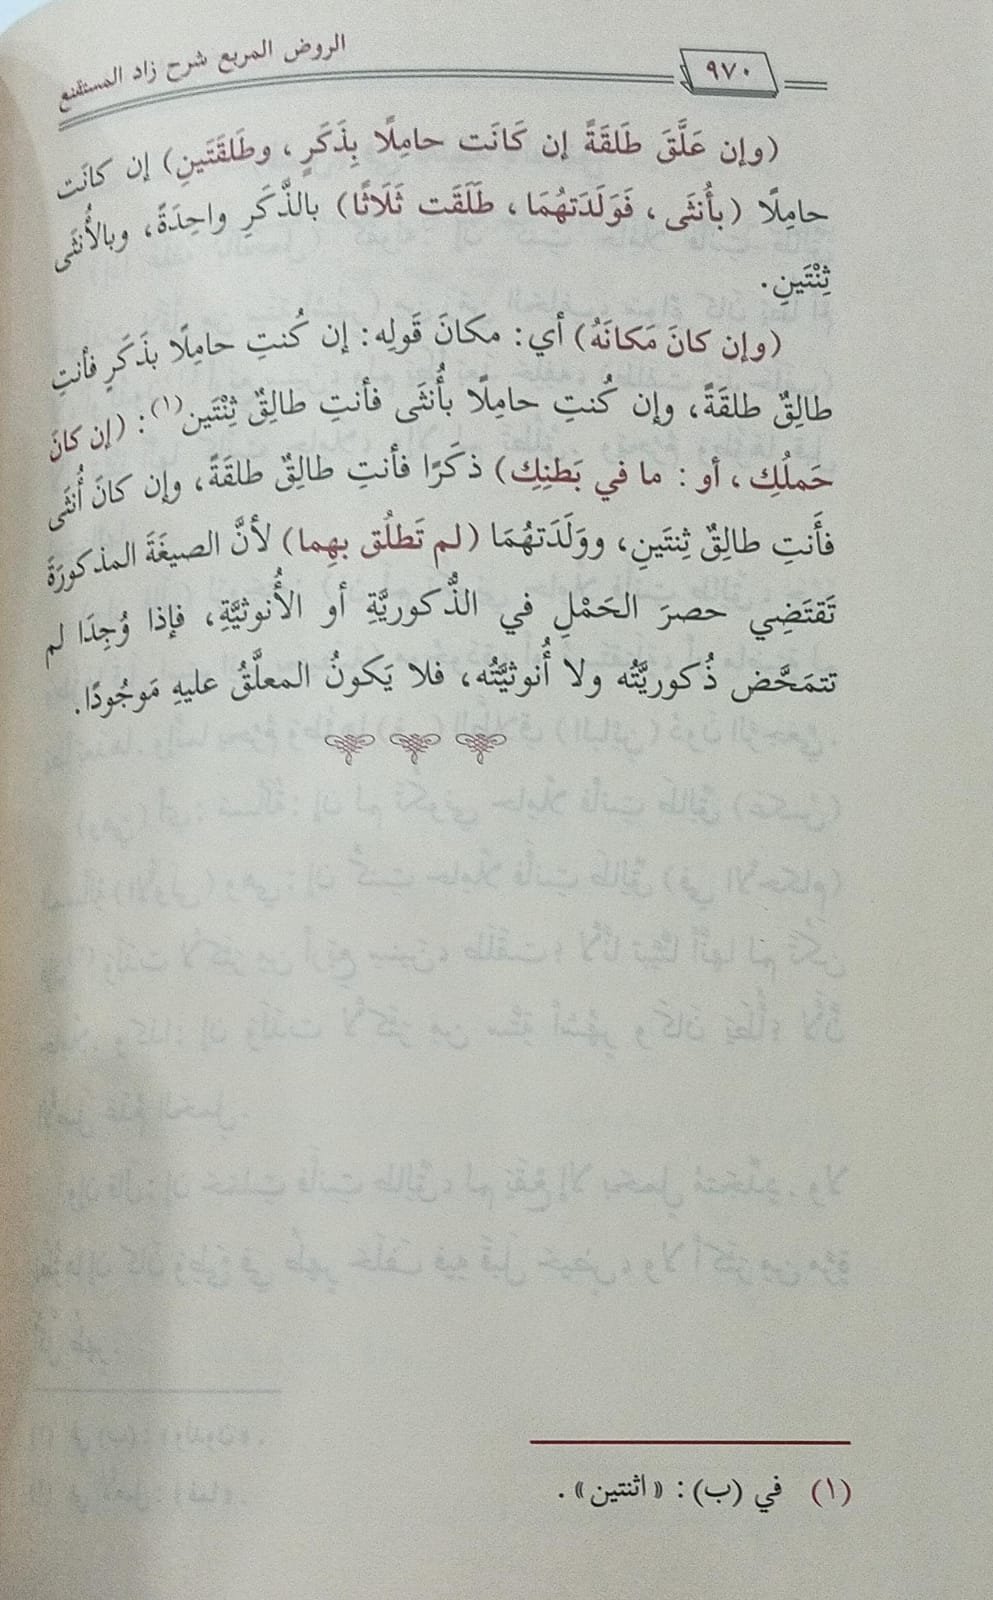 الروض المربع شرح زاد المستقنع
٩٧٠
(وإن عَلَّقَ طَلقَةً إن كَانَت حامِلًا بِذَكَرٍ، وطَلقَتَينِ) إن كانَت
حامِلًا (بأُنثَى، فَوَلَدَتهُمَا، طَلَقَت ثَلَاثًا) بالذَّكَرِ واحِدَةً، وبالأُنثَى
ثِنْتَينِ.
(وإن كانَ مَكانَهُ) أي: مكانَ قَولِه: إن كُنتِ حامِلًا بذَكَرٍ فأنتِ
طالِقٌ طلقَةً، وإن كُنتِ حامِلًا بأُنثَى فأنتِ طالِقٌ ثِنْتَين(١): (إن كانَ
حَملُكِ، أو: ما في بَطنِكِ) ذكَرًا فأنتِ طالِقٌ طلقَةً، وإن كانَ أُنثَى
فأَنتِ طالِقٌ ثِنتَينِ، ووَلَدَتهُمَا (لم تَطلُق بهِما) لأنَّ الصيغَةَ المذكورَةَ
تَقتَضِي حصرَ الحَمْلِ في الذُّكوريَّةِ أو الأُنوثيَّةِ، فإذا وُجِدَا لم
تتمَحَّض ذُكوريَّتُه ولا أُنوثيَّتُه، فلا يَكونُ المعلَّقُ عليهِ مَوجُودًا.
(١) في (ب): «اثنتين».